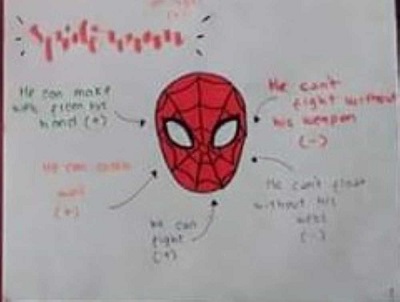 (+)
He can make
web from his
hand (+)
He can't
fight without
his weapon
(-)
He can
wall
(+)
He can
fight
(+)
He can't float
without his
web
(-)